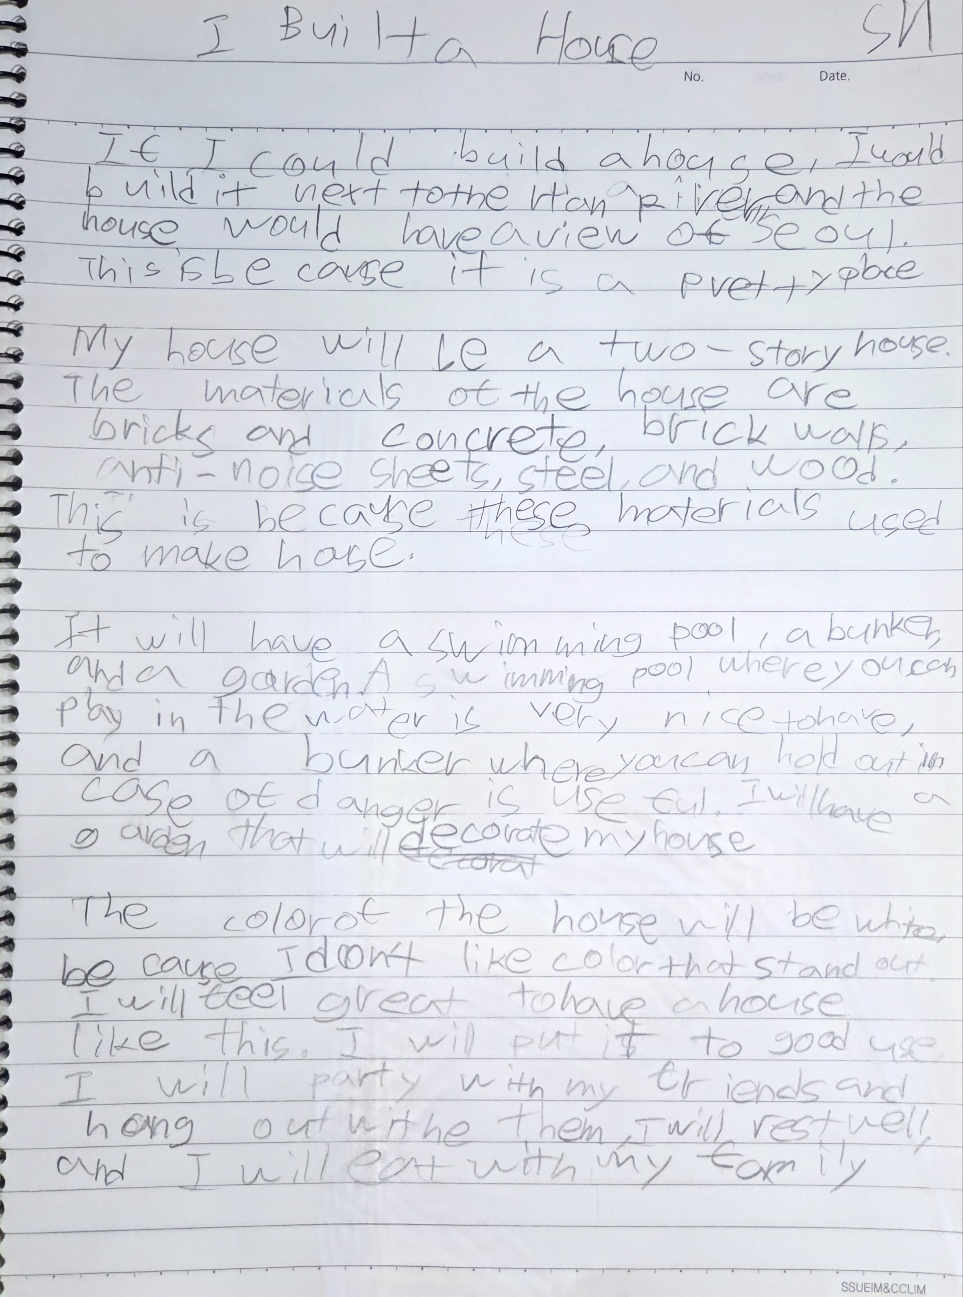 I Built a House SN
No. Date.
If I could build a house, I would
build it next to the Han River, and the
house would have a view of Seoul.
This is be cause it is a pretty place
My house will be a two-story house.
The materials of the house are
bricks and concrete, brick walls,
anti-noise sheets, steel, and wood.
This is because these materials used
to make house.
It will have a swimming pool, a bunker,
and a garden. A swimming pool where you can
play in the water is very nice to have,
and a bunker where you can hold out in
case of danger is useful. I will have a
garden that will decorate my house
The color of the house will be white,
be cause I don't like color that stand out
I will feel great to have a house
like this. I will put it to good use
I will party with my friends and
hang out withe them, I will rest well,
and I will eat with my family
SSUEIM&CCLIM